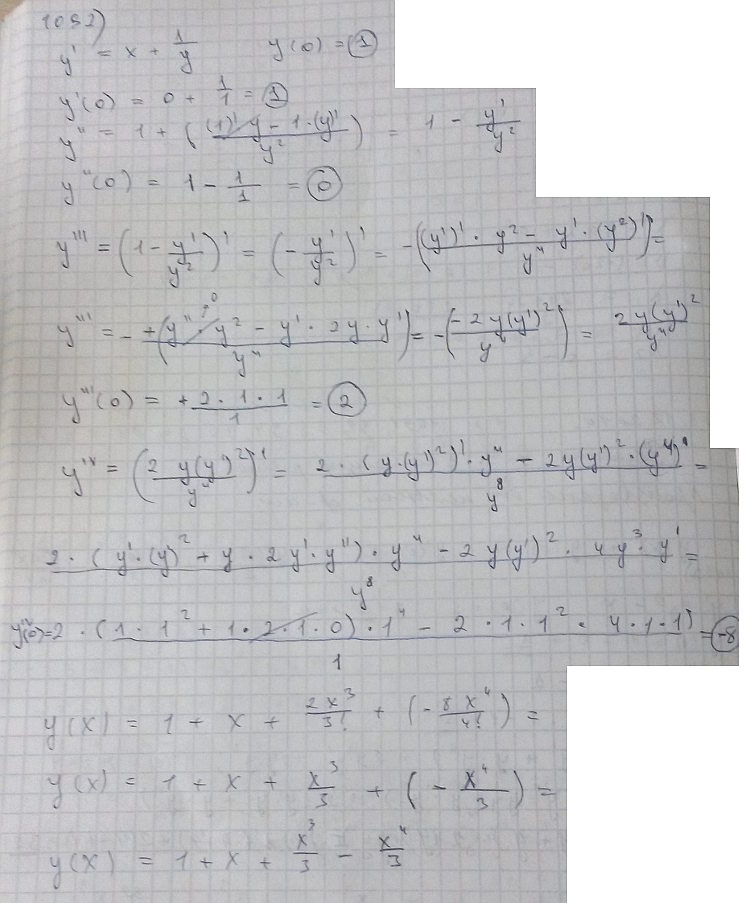 1052)
y' = x + 1/y y(0) = 1
y'(0) = 0 + 1/1 = 1
y'' = 1 + ((1)'y - 1·(y)')/y² = 1 - y'/y²
y''(0) = 1 - 1/1 = 0
y''' = (1 - y'/y²)' = (- y'/y²)' = -((y')'·y² - y'·(y²)')/y⁴ =
y''' = -+(y''·y² - y'·2y·y')/y⁴ = -(-2y(y')²/y⁴) = 2y(y')²/y⁴
y'''(0) = +2·1·1/1 = 2
yⁱᵛ = (2y(y')²/y⁴)' = 2·(y·(y')²)'·y⁴ - 2y(y')²·(y⁴)'/y⁸ =
2·(y'·(y')² + y·2y'·y'')·y⁴ - 2y(y')²·4y³·y'/y⁸ =
yⁱᵛ(0)=2·(1·1² + 1·2·1·0)·1⁴ - 2·1·1²·4·1·1)/1 = -8
y(x) = 1 + x + 2x³/3! + (-8x⁴/4!) =
y(x) = 1 + x + x³/3 + (-x⁴/3) =
y(x) = 1 + x + x³/3 - x⁴/3